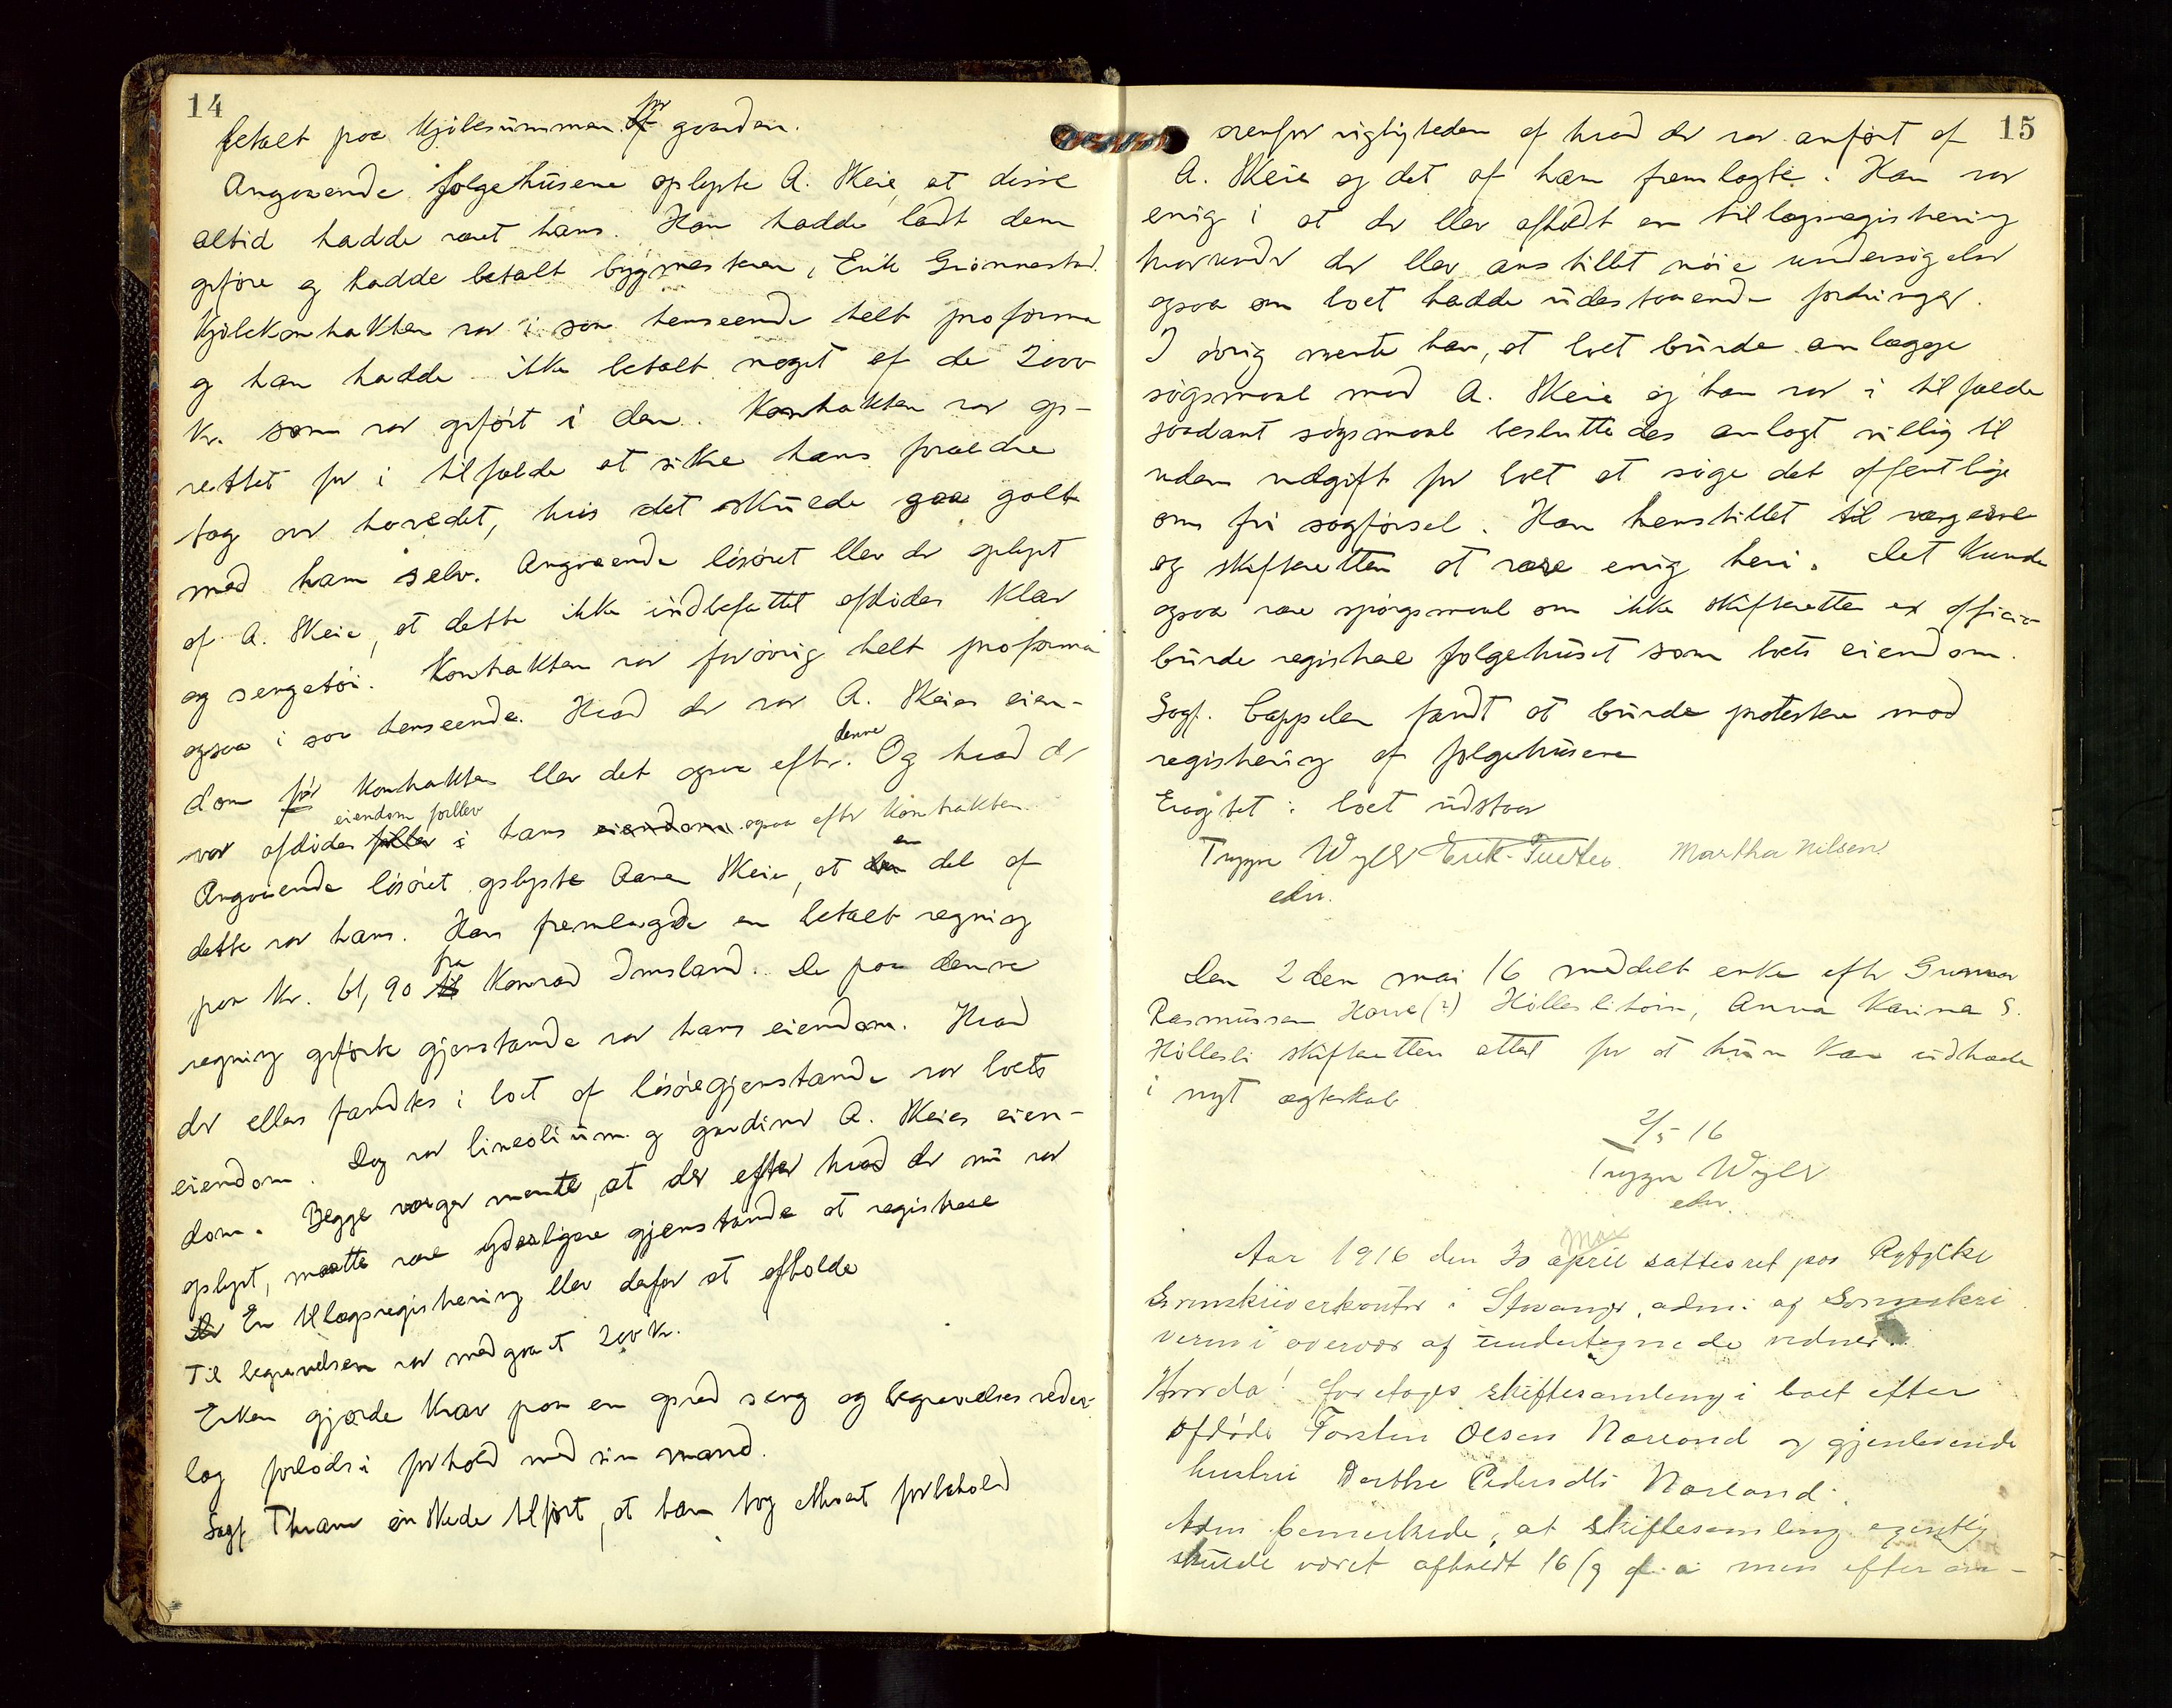 14
betalt paa kjöbesummen for gaarden.
Angaaende folgehusene oplyste A. Skeie, at disse
altid hadde været hans. Han hadde ladt dem
opföre og hadde betalt bygmesteren, Erik Grönnestad.
Kjöbekontrakten var i saa henseende helt proforma
og han hadde ikke betalt noget af de 2000
kr. som var opfört i den. Kontrakten var op-
rettet for i tilfælde at sikre hans forældre
tag over hovedet, hvis det skulde gaa galt
med ham selv. Angaaende lösöret blev der oplyst
af A. Skeie, at dette ikke indbefattet afdödes klær
og sengetöi. Kontrakten var forövrig helt proforma
ogsaa i saa henseende. Hvad der var A. Skeies eien-
dom för kontrakten blev det ogsaa efter denne. Og hvad der
var afdödes eiendom forblev i hans ogsaa efter kontrakten.
Angaaende lösöret oplyste Aanen Skeie, at en del af
dette var hans. Han fremlagde en betalt regning
paa kr. 61,90 fra Konrad Imsland. De paa denne
regning opförte gjenstande var hans eiendom. Hvad
der ellers fandtes i boet af lösöregjenstande var boets
eiendom. Dog var lineolium og gardiner A. Skeies eien-
dom. Begge verger mente, at der efter hvad der nu var
oplyst, maatte være yderligere gjenstande at registrere
En tillægsregistrering blev derfor at afholde
Til begravelsen var medgaaet 200 kr.
Enken gjorde krav paa en opred seng og begravelses veder-
lag forlods i forhold med sin mand.
Sagf. Thrane önskede tilfört, at han tog ethvert forbehold
15
ovenfor rigtigheden af hvad der var anfört af
A. Skeie og det af ham fremlagte. Han var
enig i at der blev afholdt en tillægsregistrering
hvorunder der blev anstillet nöie undersögelser
ogsaa om boet hadde udestaaende fordringer.
I övrig mente han, at boet burde anlægge
sögsmaal mod A. Skeie og han var i tilfælde
saadant sögsmaal besluttedes anlagt villig til
uden udgift for boet at söge det offentlige
om fri sagförsel. Han henstillet til vergerne
og skifteretten at være enig heri. Det kunde
ogsaa være spörgsmaal om ikke skifteretten ex officio
burde registrere folgehuset som boets eiendom.
Sagf. Cappelen fandt at burde protestere mod
registrering af folgehusene
Eragtet: boet udstaar
Trygve Wyller Martha Nilsen
edv.
Den 2den mai 16 meddelt enke efter Gunnar
Rasmussen Horve(?) Hillesli, Anna Karina S.
Hillesli skifteretten attest for at hun kan indtræde
i nyt ægteskab
2/5 16
Trygve Wyller
edv.
Aar 1916 den 30 mai april sattes ret paa Ryfylke
Sorenskriverkontor i Stavanger, adm. af Sorenskri
veren i overvær af undertegnede vidner.
Hvorda! foretoges skiftesamling i boet efter
afdöde Torsten Olsen Nærland og gjenlevende
hustru Berthe Pedersdtr Nærland.
Adm bemerkede, at skiftesamling egentlig
skulde været afholdt 16/9 f. a. men efter an-